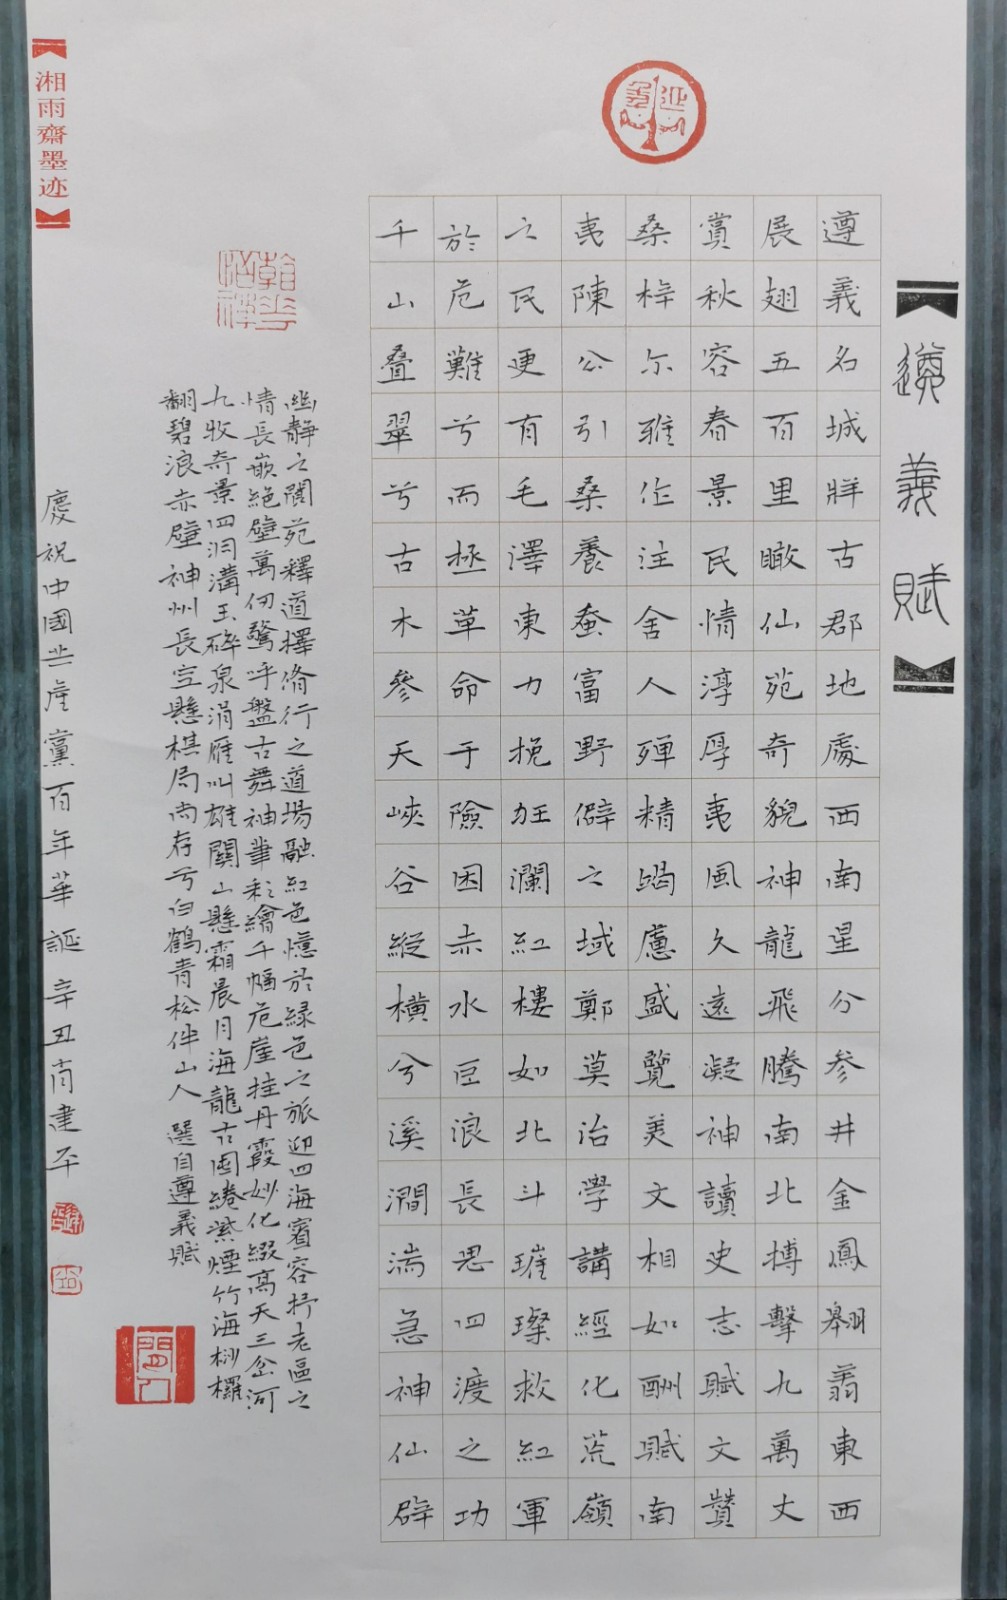 遵義賦
遵義名城牂古郡地處西南星分參井金鳳翱翥東西
展翅五百里瞰仙苑奇貌神龍飛騰南北搏擊九萬丈
賞秋容春景民情淳厚夷風久遠凝神讀史志賦文贊
桑梓尔雅作注舍人殫精竭慮盛覽美文相如酬賦南
夷陳公引桑養蚕富野僻之域鄭莫治學講經化荒嶺
之民更有毛澤東力挽狂瀾紅樓如北斗璀璨救紅軍
於危難兮而拯革命于險困赤水巨浪長思四渡之功
千山叠翠兮古木參天峽谷縱橫兮溪澗湍急神仙辟
幽靜之閬苑釋道擇脩行之道場融紅色憶於綠色之旅迎四海賓容抒老區之
情長嵌絕壁萬仞驚呼盤古舞神筆彩繪千幅危崖挂丹霞妙化綴高天三岔河
九收奇景四洞溝玉碎泉涓雁叫雄關山懸霜晨月海龍古囤綣紫煙竹海桫欏
翻碧浪赤壁神州長空懸棋局尚存兮白鶴青松伴山人 選自遵義賦
慶祝中國共產黨百年華誕 辛丑肖建平
湘雨齋墨迹